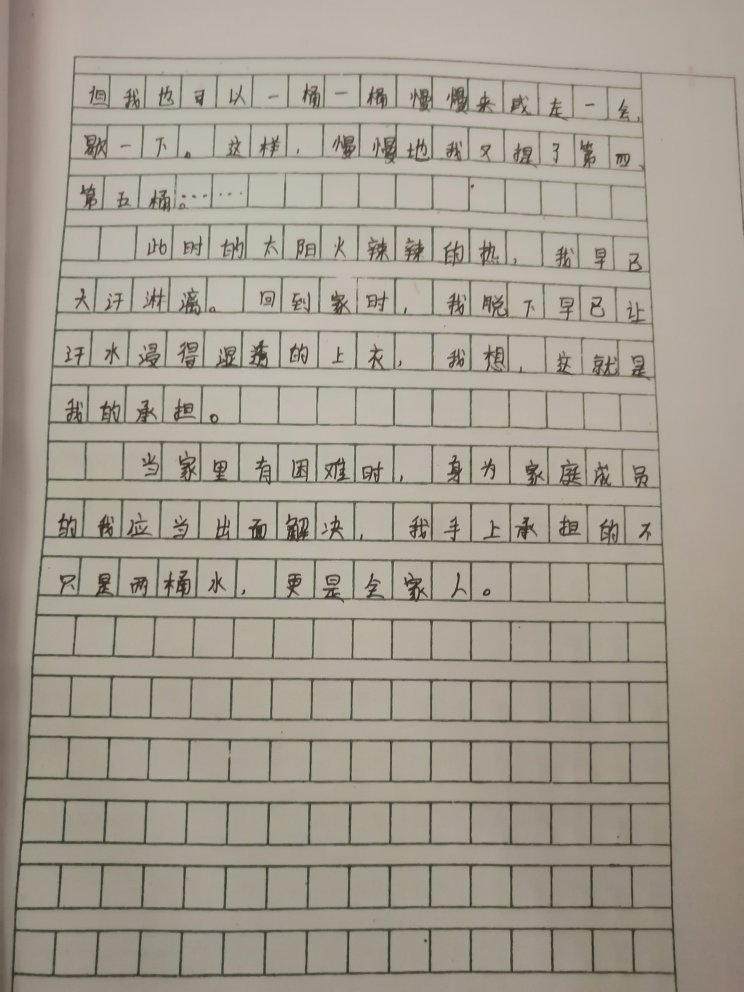 但我也可以一桶一桶慢慢来或走一会,
歇一下。这样，慢慢地我又提了第四、
第五桶。……
此时的太阳火辣辣的热，我早已
大汗淋漓。回到家时，我脱下早已让
汗水浸得湿透的上衣，我想，这就是
我的承担。
当家里有困难时，身为家庭成员
的我应当出面解决，我手上承担的不
只是两桶水，更是全家人。